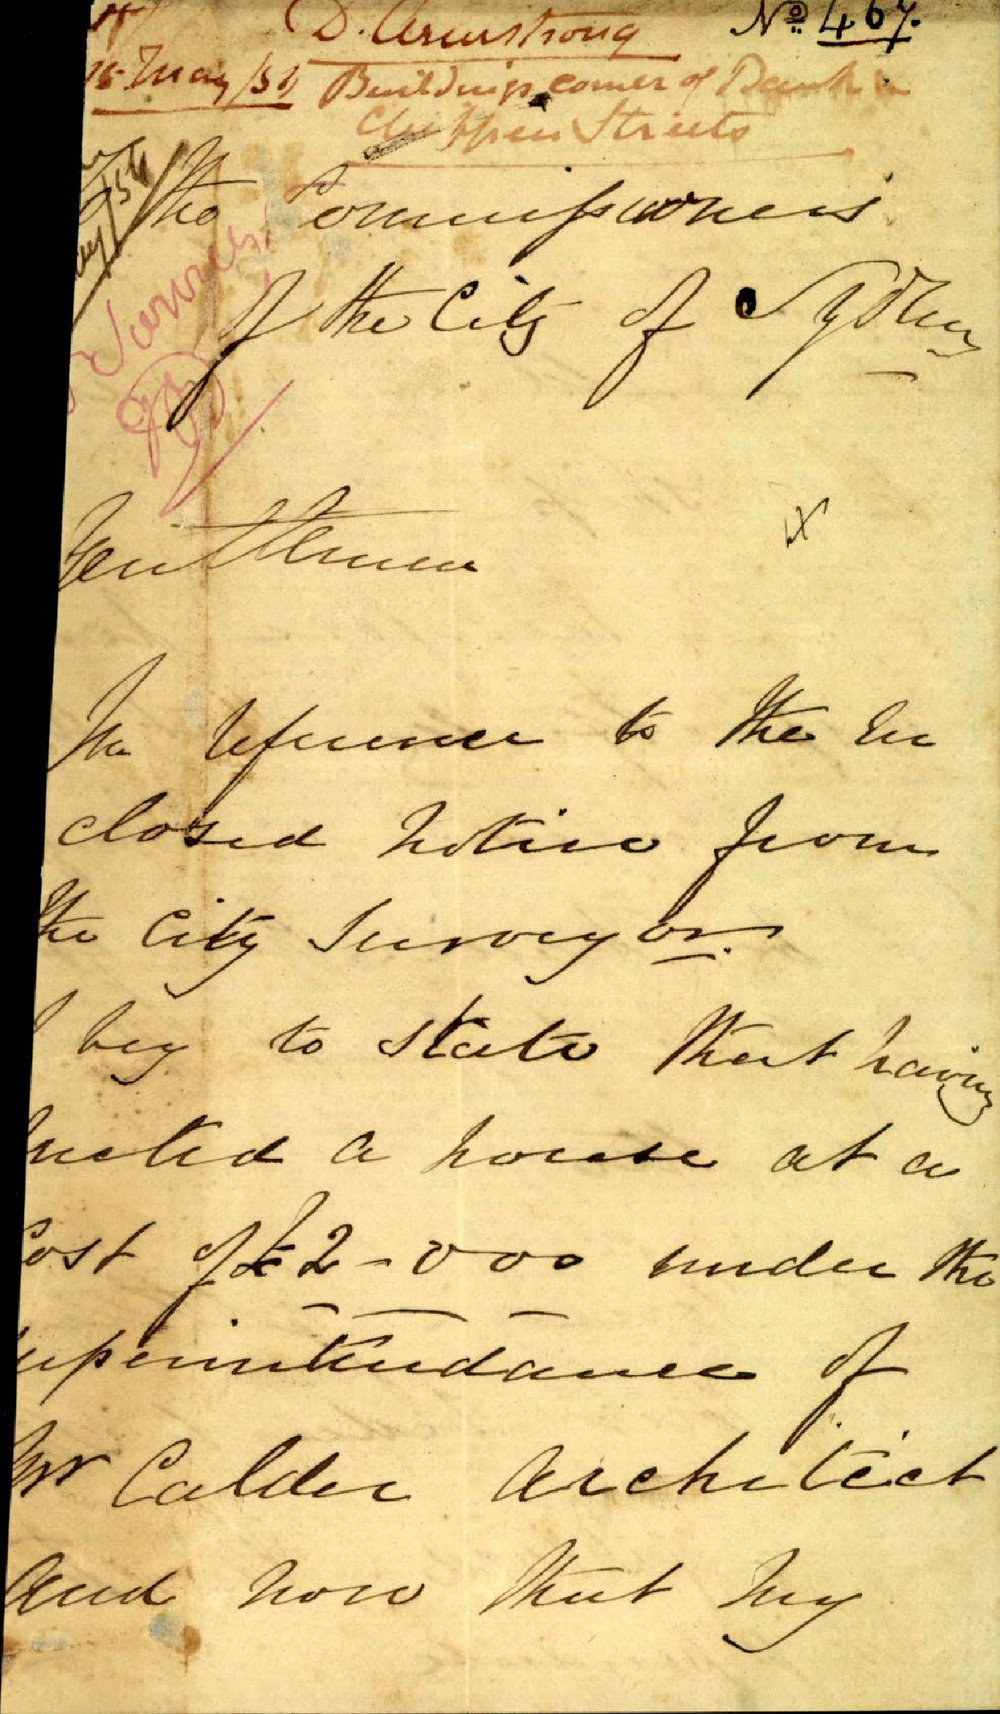 D. Armstrong
No. 467.
May/54
Buildings, corner of Bank &
Chippen Streets
To the Commissioners
of the City of Sydney
Gentlemen
In reference to the en
closed notice from
the City Surveyor.
I beg to state that having
erected a house at a
Cost of £2-000 under the
Superintendance of
Mr Calder Architect
And now that my